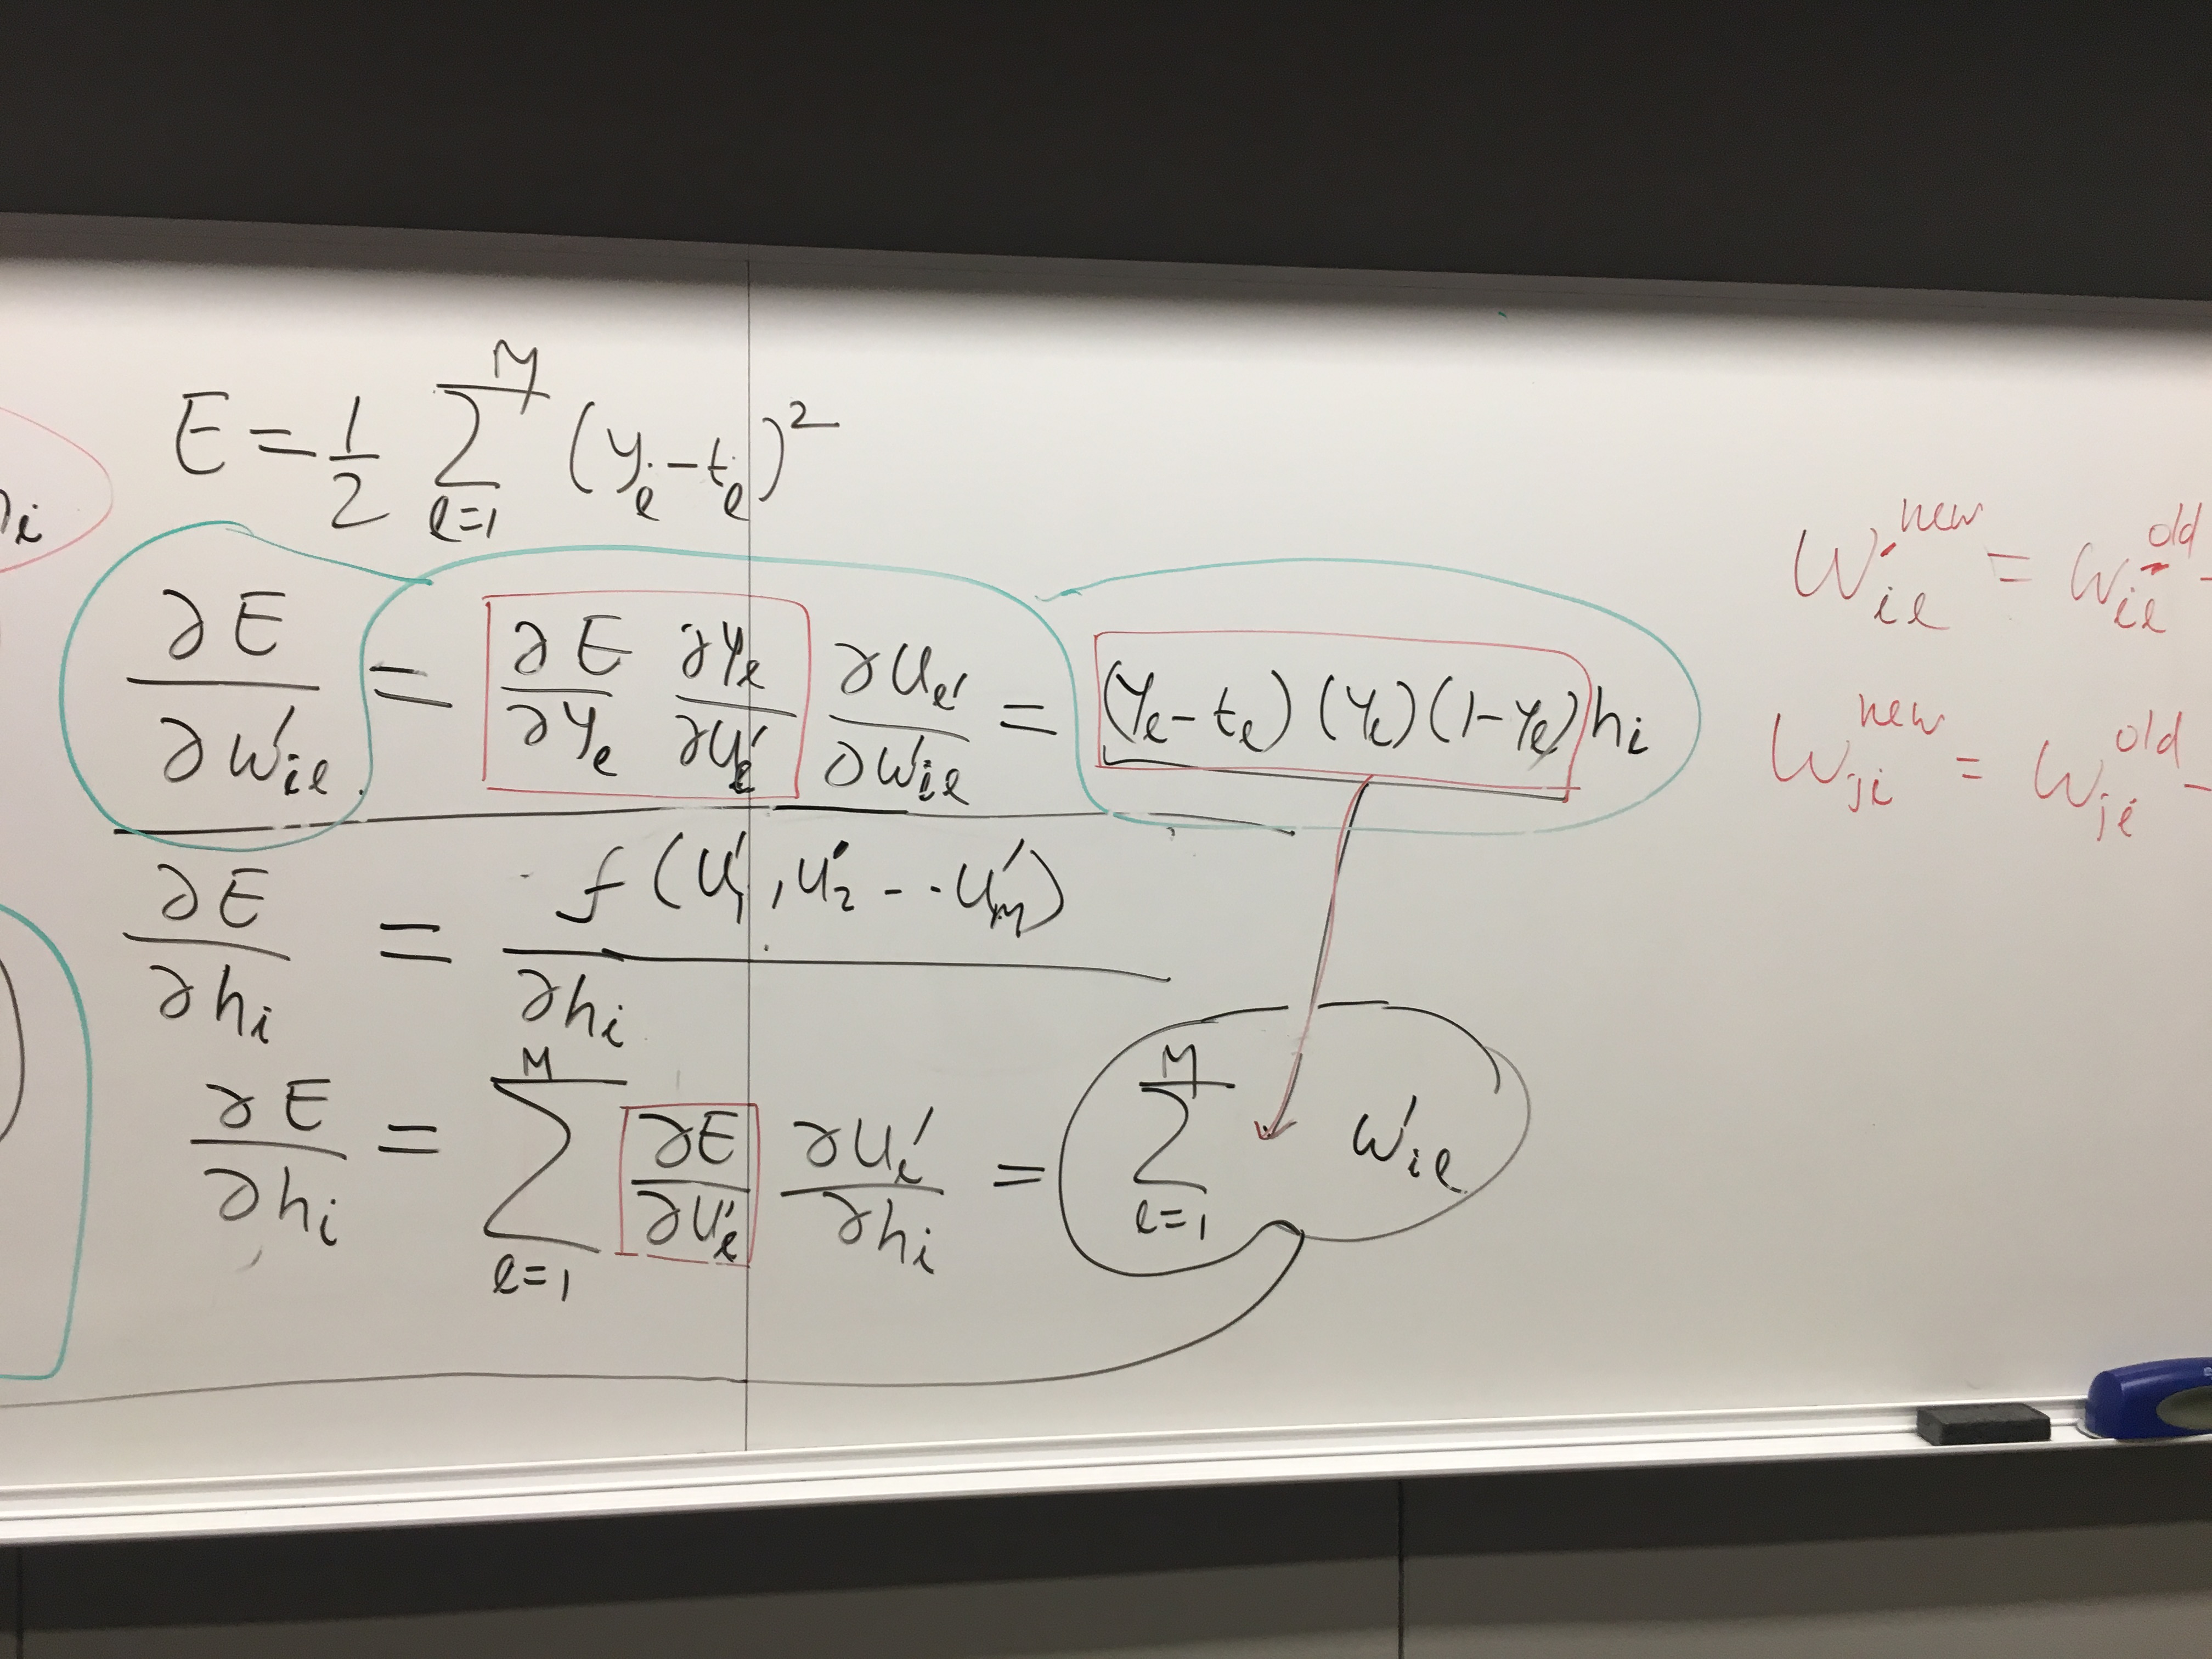 E = 1/2 Σ_{ℓ=1}^{M} (y_ℓ - t_ℓ)²
∂E/∂w'_{iℓ} = ∂E/∂y_ℓ ∂y_ℓ/∂u'_ℓ ∂u_ℓ'/∂w'_{iℓ} = (y_ℓ - t_ℓ)(y_ℓ)(1 - y_ℓ) h_i
∂E/∂h_i = f(u'_1, u'_2 - - u'_M)/∂h_i
∂E/∂h_i = Σ_{ℓ=1}^{M} ∂E/∂u'_ℓ ∂u'_ℓ/∂h_i = Σ_{ℓ=1}^{M} w'_{iℓ}
w'_{iℓ}^{new} = w'_{iℓ}^{old} -
w_{ji}^{new} = w_{ji}^{old} -